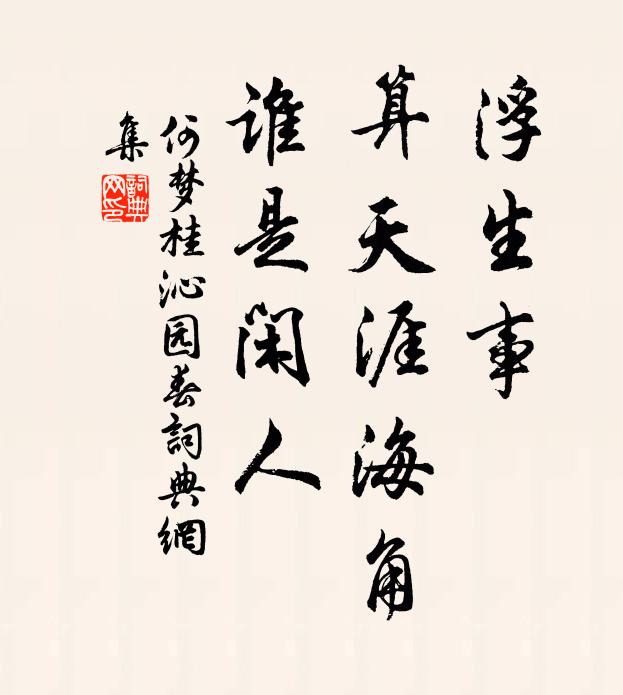 浮生事
算天涯海角
谁是闲人
何梦桂沁园春詞典網
集
詞典网印